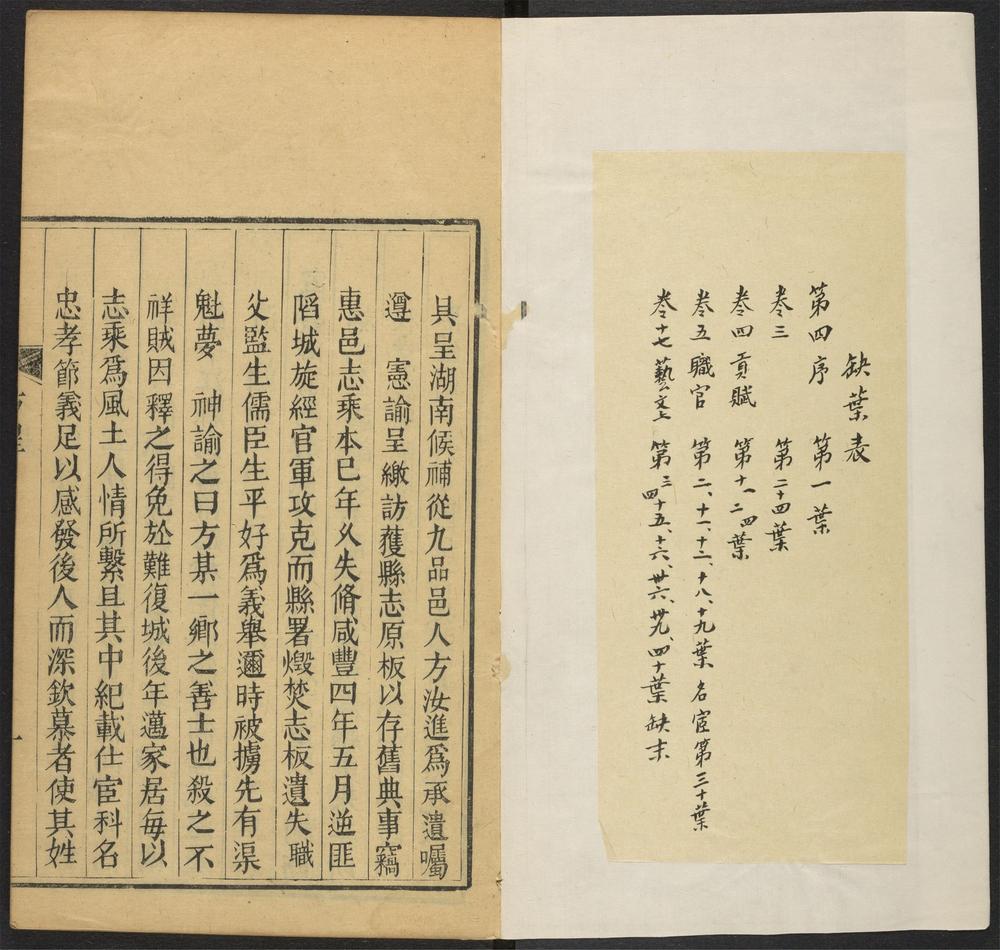 缺葉表
第四序 第一葉
卷三 第二十四葉
卷四貢賦 第十一二四葉
卷五職官 第二、十一、十二、十八、十九葉 名宦第三十葉
卷十七藝文上 第三四十五、十六、卅六、卅九、四十葉缺末
具呈湖南候補從九品邑人方汝進爲承遺囑
遵 憲諭呈繳訪獲縣志原板以存舊典事竊
惠邑志乘本已年久失脩咸豐四年五月逆匪
陷城旋經官軍攻克而縣署燬焚志板遺失職
父監生儒臣生平好爲義舉邇時被擄先有渠
魁夢 神諭之曰方某一鄉之善士也殺之不
祥賊因釋之得免於難復城後年邁家居每以
志乘爲風土人情所繫且其中紀載仕宦科名
忠孝節義足以感發後人而深欽慕者使其姓
一